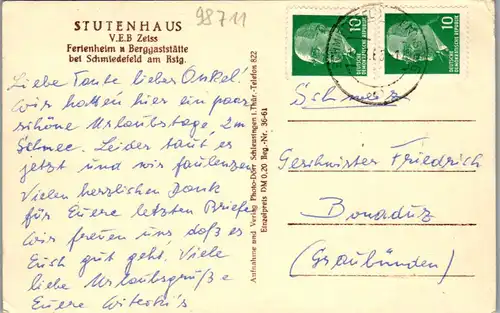 98711
STUTENHAUS
V.E.B Zeiss
Ferienheim u Berggaststätte
bei Schmiedefeld am Rstg.
Liebe Tante lieber Onkel!
Wir hatten hier ein paar
schöne Urlaubstage, 2m
Schnee. Leider taut es
jetzt und wir faulenzen.
Vielen herzlichen Dank
für Euere letzten Briefe
Wir freuen uns daß es
Euch gut geht. Viele
liebe Urlaubsgrüße
Euere
Aufnahme und Verlag Photo-Dörr Schleusingen i. Thür.-Telefon 822
Einzelpreis DM 0,20 Reg.-Nr. 36-61
10
DEUTSCHE
DEMOKRATISCHE
REPUBLIK
10
DEUTSCHE
DEMOKRATISCHE
REPUBLIK
Schweiz
Geschwister Friedrich
Bonaduz
(Graubünden)